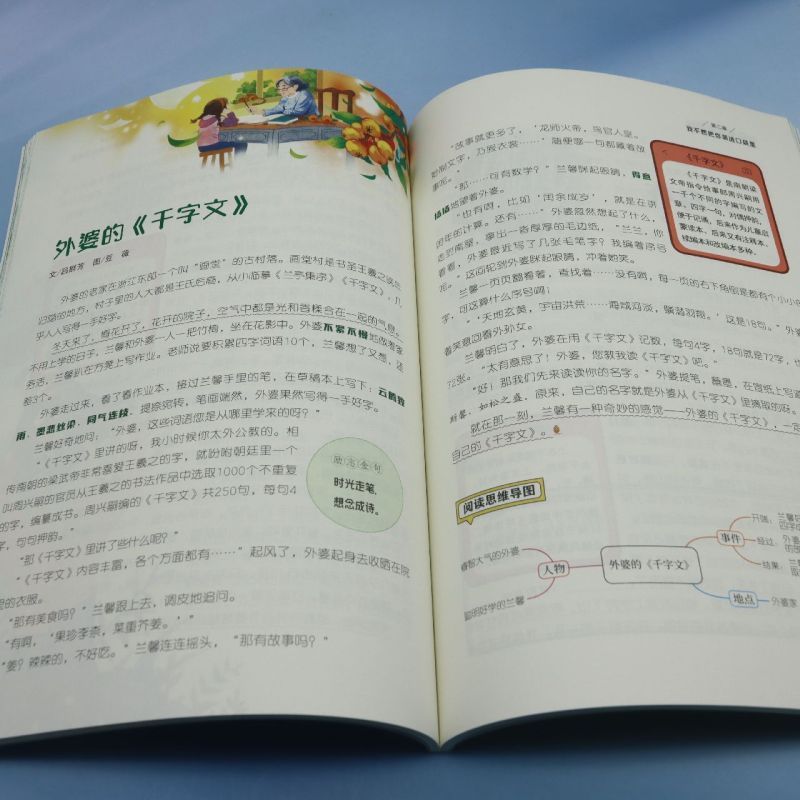 外婆的《千字文》
文/吕群芳 图/豆薇
外婆的老家在浙江东部一个叫“画堂”的古村落。画堂村是书圣王羲之晚年
归隐的地方，村子里的人大都是王氏后裔，从小临摹《兰亭集序》《千字文》，几
乎人人写得一手好字。
冬天来了，梅花开了，花开的院子，空气中都是光和香糅合在一起的气息。
不用上学的日子，兰馨和外婆一人一把竹椅，坐在花影中。外婆不紧不慢地做着家
务活，兰馨趴在方凳上写作业。老师说要积累四字词语10个，兰馨想了又想，还
差3个。
外婆走过来，看了看作业本，接过兰馨手里的笔，在草稿本上写下：云腾致
雨、墨悲丝染、同气连枝。提捺宛转，笔画端然，外婆果然写得一手好字。
兰馨好奇地问：“外婆，这些词语您是从哪里学来的呀？”
“《千字文》里讲的呀，我小时候你太外公教的。相
传南朝的梁武帝非常喜爱王羲之的字，就吩咐朝廷里一个
叫周兴嗣的官员从王羲之的书法作品中选取1000个不重复
的字，编纂成书。周兴嗣编的《千字文》共250句，每句4
字，句句押韵。”
“那《千字文》里讲了些什么呢？”
“《千字文》内容丰富，各个方面都有……”起风了，外婆起身去收晒在院
里的衣服。
“那有美食吗？”兰馨跟上去，调皮地追问。
“有啊，‘果珍李柰，菜重芥姜。’”
“姜？辣辣的，不好吃。”兰馨连连摇头，“那有故事吗？”
励志金句
时光走笔，
想念成诗。
第二章
我不想把你装进口袋里
“故事就更多了，‘龙师火帝，鸟官人皇。
始制文字，乃服衣裳……’随便哪一句都藏着故
事呢。”
“那……可有数学？”兰馨眯起眼睛，得意
地望着外婆。
“也有啊，比如‘闰余成岁’，就是在讲
闰年的计算。还有……”外婆忽然想起了什么，
走到南屋，拿出一沓厚厚的毛边纸，“兰兰，你
看看，外婆最近写了几张毛笔字？我编着序号
呢。”这回轮到外婆眯起眼睛，冲着她笑。
兰馨一页页翻看着，查找着……没有啊，每一页的右下角倒是都有个小小
字，可这算什么序号啊！
“‘天地玄黄，宇宙洪荒……海咸河淡，鳞潜羽翔。’这是18句。”外
着笑意回看外孙女。
兰馨明白了，外婆在用《千字文》记数，每句4字，18句就是72字，也
72张。“太有意思了！外婆，您教我读《千字文》吧。”
“好！那我们先来读读你的名字。”外婆提笔，蘸墨，在宣纸上写道
斯馨，如松之盛。原来，自己的名字就是外婆从《千字文》里摘取的呀。
就在那一刻，兰馨有一种奇妙的感觉——外婆的《千字文》，一定
自己的《千字文》。
《千字文》
《千字文》是南朝梁武
文帝指令给事郎周兴嗣用
一千个不同的字编写的文
章，四字一句，对偶押韵，
便于记诵，后来又作儿童启
蒙读本，后来又有注释本、
续编本和改编本多种。
阅读思维导图
睿智大气的外婆
聪明好学的兰馨
人物
外婆的《千字文》
事件
开端：兰馨
经过：外婆
结果：兰
地点
外婆家